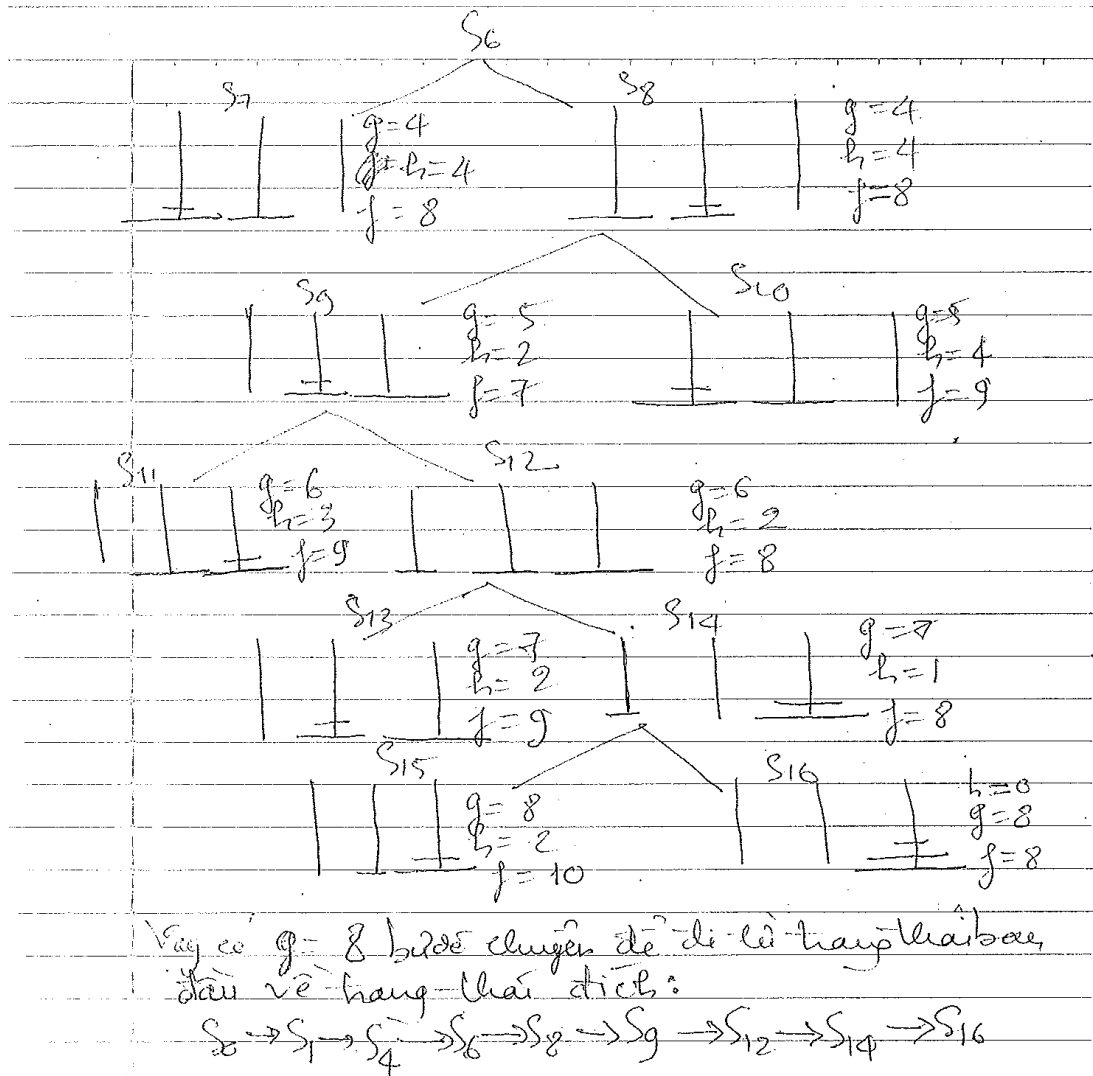 S6
S7
g=4
h=4
f=8
S8
g=4
h=4
f=8
S9
g=5
h=2
f=7
S10
g=5
h=4
f=9
S11
g=6
h=3
f=9
S12
g=6
h=2
f=8
S13
g=7
h=2
f=9
S14
g=7
h=1
f=8
S15
g=8
h=2
f=10
S16
h=0
g=8
f=8
Vậy có g=8 bước chuyển để đi từ trạng thái ban
đầu về trạng thái đích:
S0→S1→S4→S6→S8→S9→S12→S14→S16